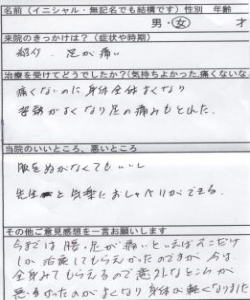 名前（イニシャル・無記名でも結構です）性別 年齢
男・女 才
来院のきっかけは？（症状や時期）
紹介、足が痛い
治療を受けてどうでしたか？（気持ちよかった、痛くないな
痛くないのに身体全体がよくなり
姿勢がよくなり足の痛みもとれた。
当院のいいところ、悪いところ
服をぬがなくてもいいし
先生と気楽におしゃべりができる。
その他ご意見感想を一言お願いします
今までは腰・足が痛いといえばそこだけ
しか治療してもらえなかったのですが、今は、
全身みてもらえるので意外なところが
悪かったのがよくなり身体が軽くなりました